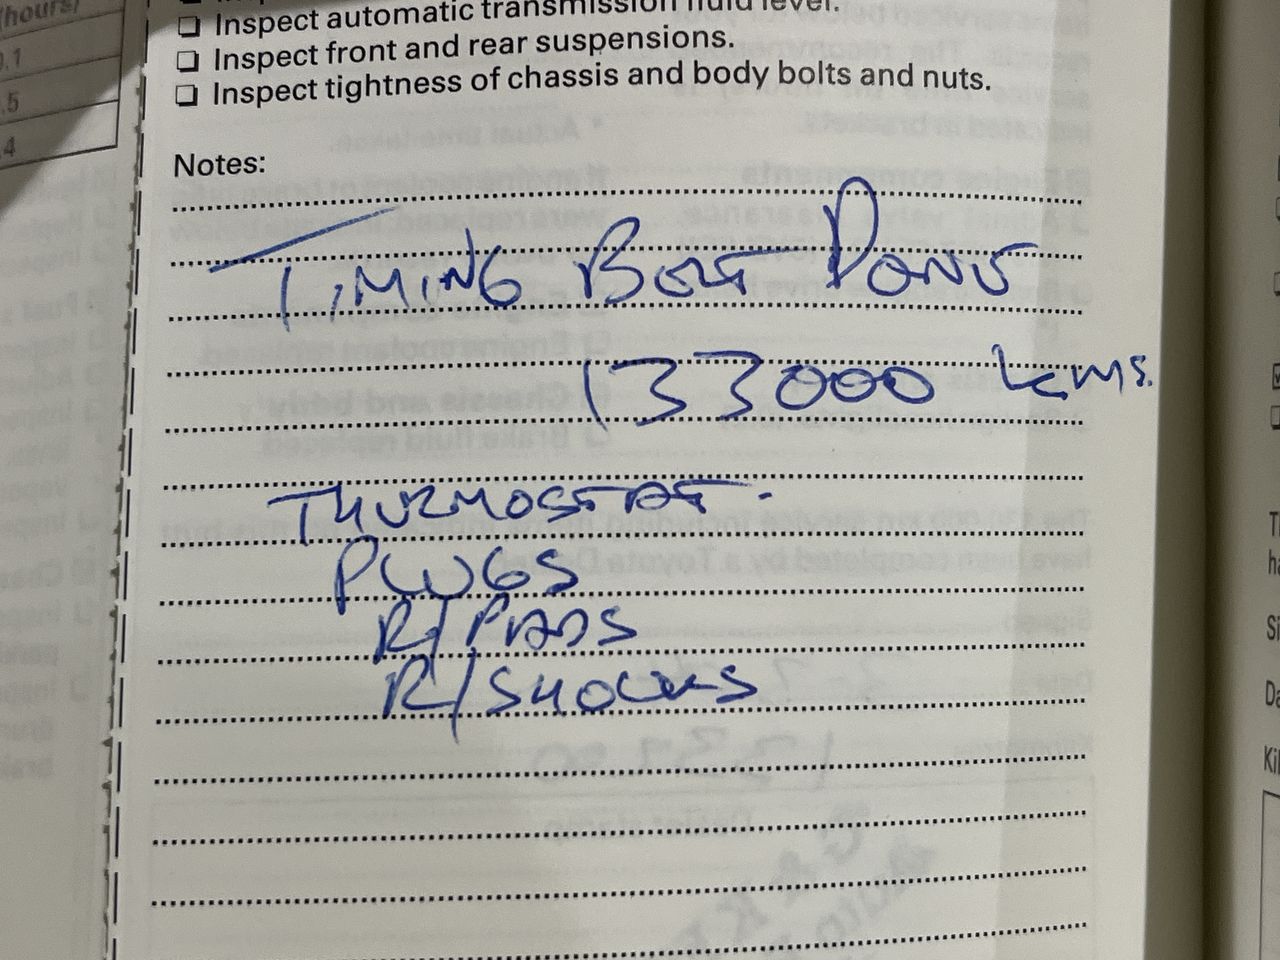 (hours)
0.1
.5
.4
❑ Inspect automatic transmission fluid level.
❑ Inspect front and rear suspensions.
❑ Inspect tightness of chassis and body bolts and nuts.
Notes:
TIMING BELT DONE
133000 kms.
THERMOSTAT.
PLUGS
R/PADS
R/SHOCKS